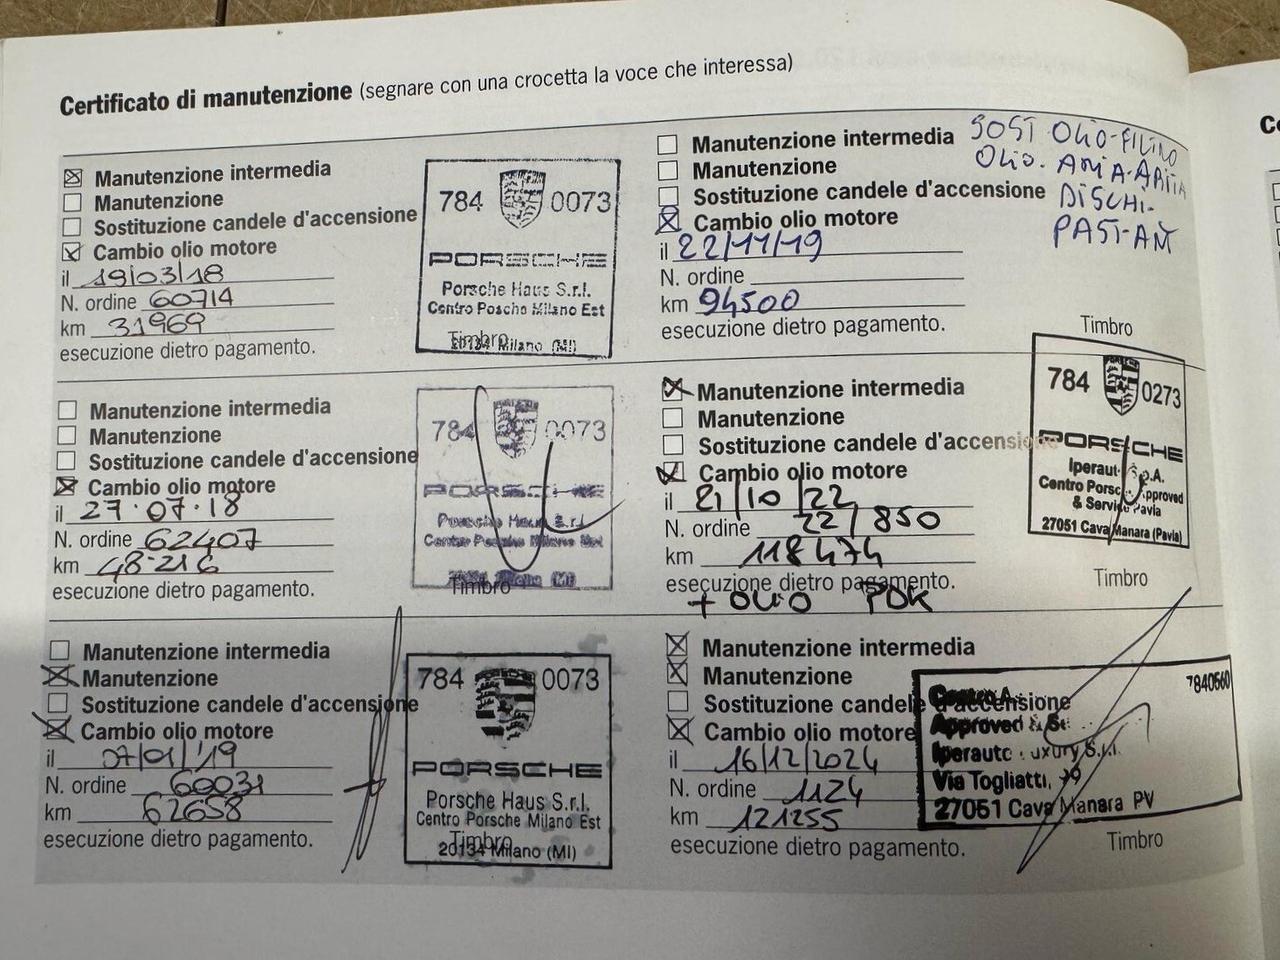 Certificato di manutenzione (segnare con una crocetta la voce che interessa)
Manutenzione intermedia
Manutenzione
Sostituzione candele d'accensione
Cambio olio motore
il 19/03/18
N. ordine 60714
km 31969
esecuzione dietro pagamento.
784 0073
PORSCHE
Porsche Haus S.r.l.
Centro Posche Milano Est
Timbro
20134 Milano (MI)
Manutenzione intermedia
Manutenzione
Sostituzione candele d'accensione
Cambio olio motore
il 27.07.18
N. ordine 62407
km 48.216
esecuzione dietro pagamento.
784 0073
PORSCHE
Porsche Haus S.r.l.
Centro Porsche Milano Est
Timbro
Manutenzione intermedia
Manutenzione
Sostituzione candele d'accensione
Cambio olio motore
il 07/01/'19
N. ordine 60031
km 62658
esecuzione dietro pagamento.
784 0073
PORSCHE
Porsche Haus S.r.l.
Centro Porsche Milano Est
Timbro
20134 Milano (MI)
Manutenzione intermedia
Manutenzione
Sostituzione candele d'accensione
Cambio olio motore
il 22/11/19
N. ordine
km 94500
esecuzione dietro pagamento.
SOST OLIO-FILTRO
OLIO. ARIA-
DISCHI-
PAST-ANT
Timbro
Manutenzione intermedia
Manutenzione
Sostituzione candele d'accensione
Cambio olio motore
il 21/10/22
N. ordine 22/850
km 118474
esecuzione dietro pagamento.
+ OLIO PDK
784 0273
PORSCHE
Iperauto S.p.A.
Centro Porsche Approved
& Service Pavia
27051 Cava Manara (Pavia)
Timbro
Manutenzione intermedia
Manutenzione
Sostituzione candele d'accensione
Cambio olio motore
il 16/12/2024
N. ordine 1124
km 121255
esecuzione dietro pagamento.
7840660
Approved & Se
Iperauto Luxury S.r.l.
Via Togliatti,
27051 Cava Manara PV
Timbro